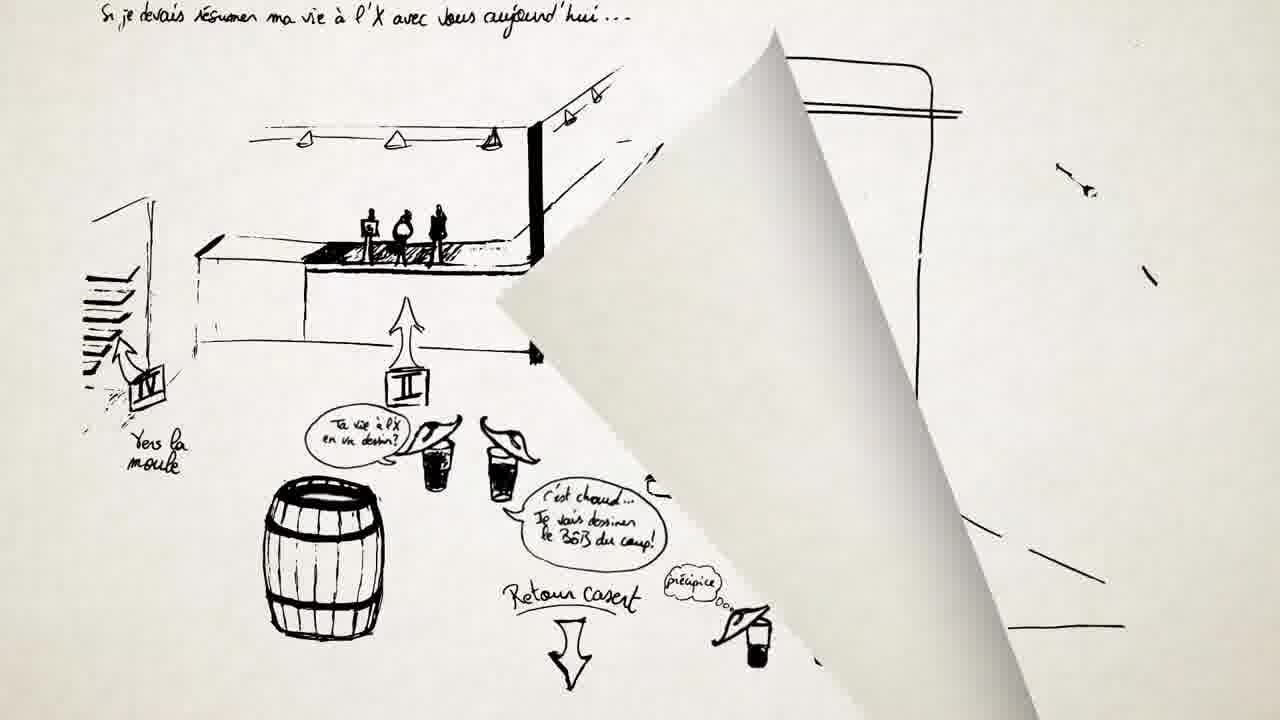 Si je devais résumer ma vie à l'X avec vous aujourd'hui...
IV
Vers la
moule
II
Ta vie à l'X
en un dessin?
c'est chaud...
Je vais dessiner
le BôB du coup!
Retour casert
précipice